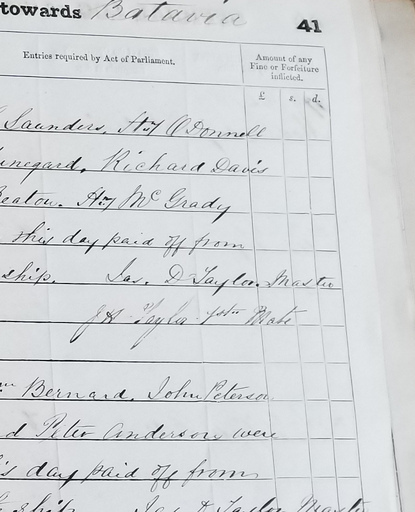 towards Batavia
41
Entries required by Act of Parliament.
Amount of any Fine or Forfeiture inflicted.
£ s. d.
Saunders, Hy O'Donnell
negard, Richard Davis
eaton. Hy Mc Grady
this day paid off from
ship. Jas. D Taylor. Master
J H Taylor Mate
Bernard, John Peterson
d Peter Anderson were
is day paid off from
ship Jas D Taylor Master